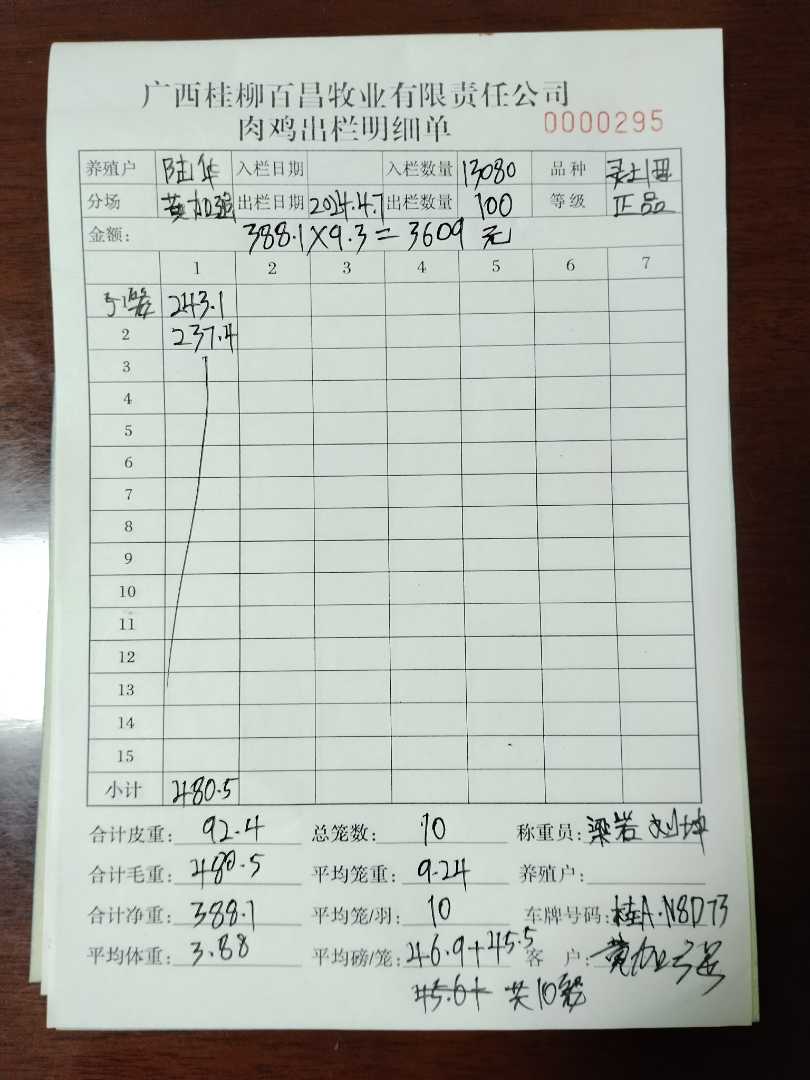 广西桂柳百昌牧业有限责任公司
肉鸡出栏明细单 0000295
养殖户 陆华 入栏日期 入栏数量 13080 品种
分场 黄加强 出栏日期 2024.4.7 出栏数量 100 等级 正品
金额: 388.1×9.3=3609元
1 2 3 4 5 6 7
243.1
2 237.4
3
4
5
6
7
8
9
10
11
12
13
14
15
小计 480.5
合计皮重: 92.4 总笼数: 10 称重员: 梁岩 刘坤
合计毛重: 480.5 平均笼重: 9.24 养殖户:
合计净重: 388.1 平均笼/羽: 10 车牌号码: 桂A·N8D73
平均体重: 3.88 平均磅/笼: 46.9+45.5 客户: 黄加强
45.6+ 共10笼